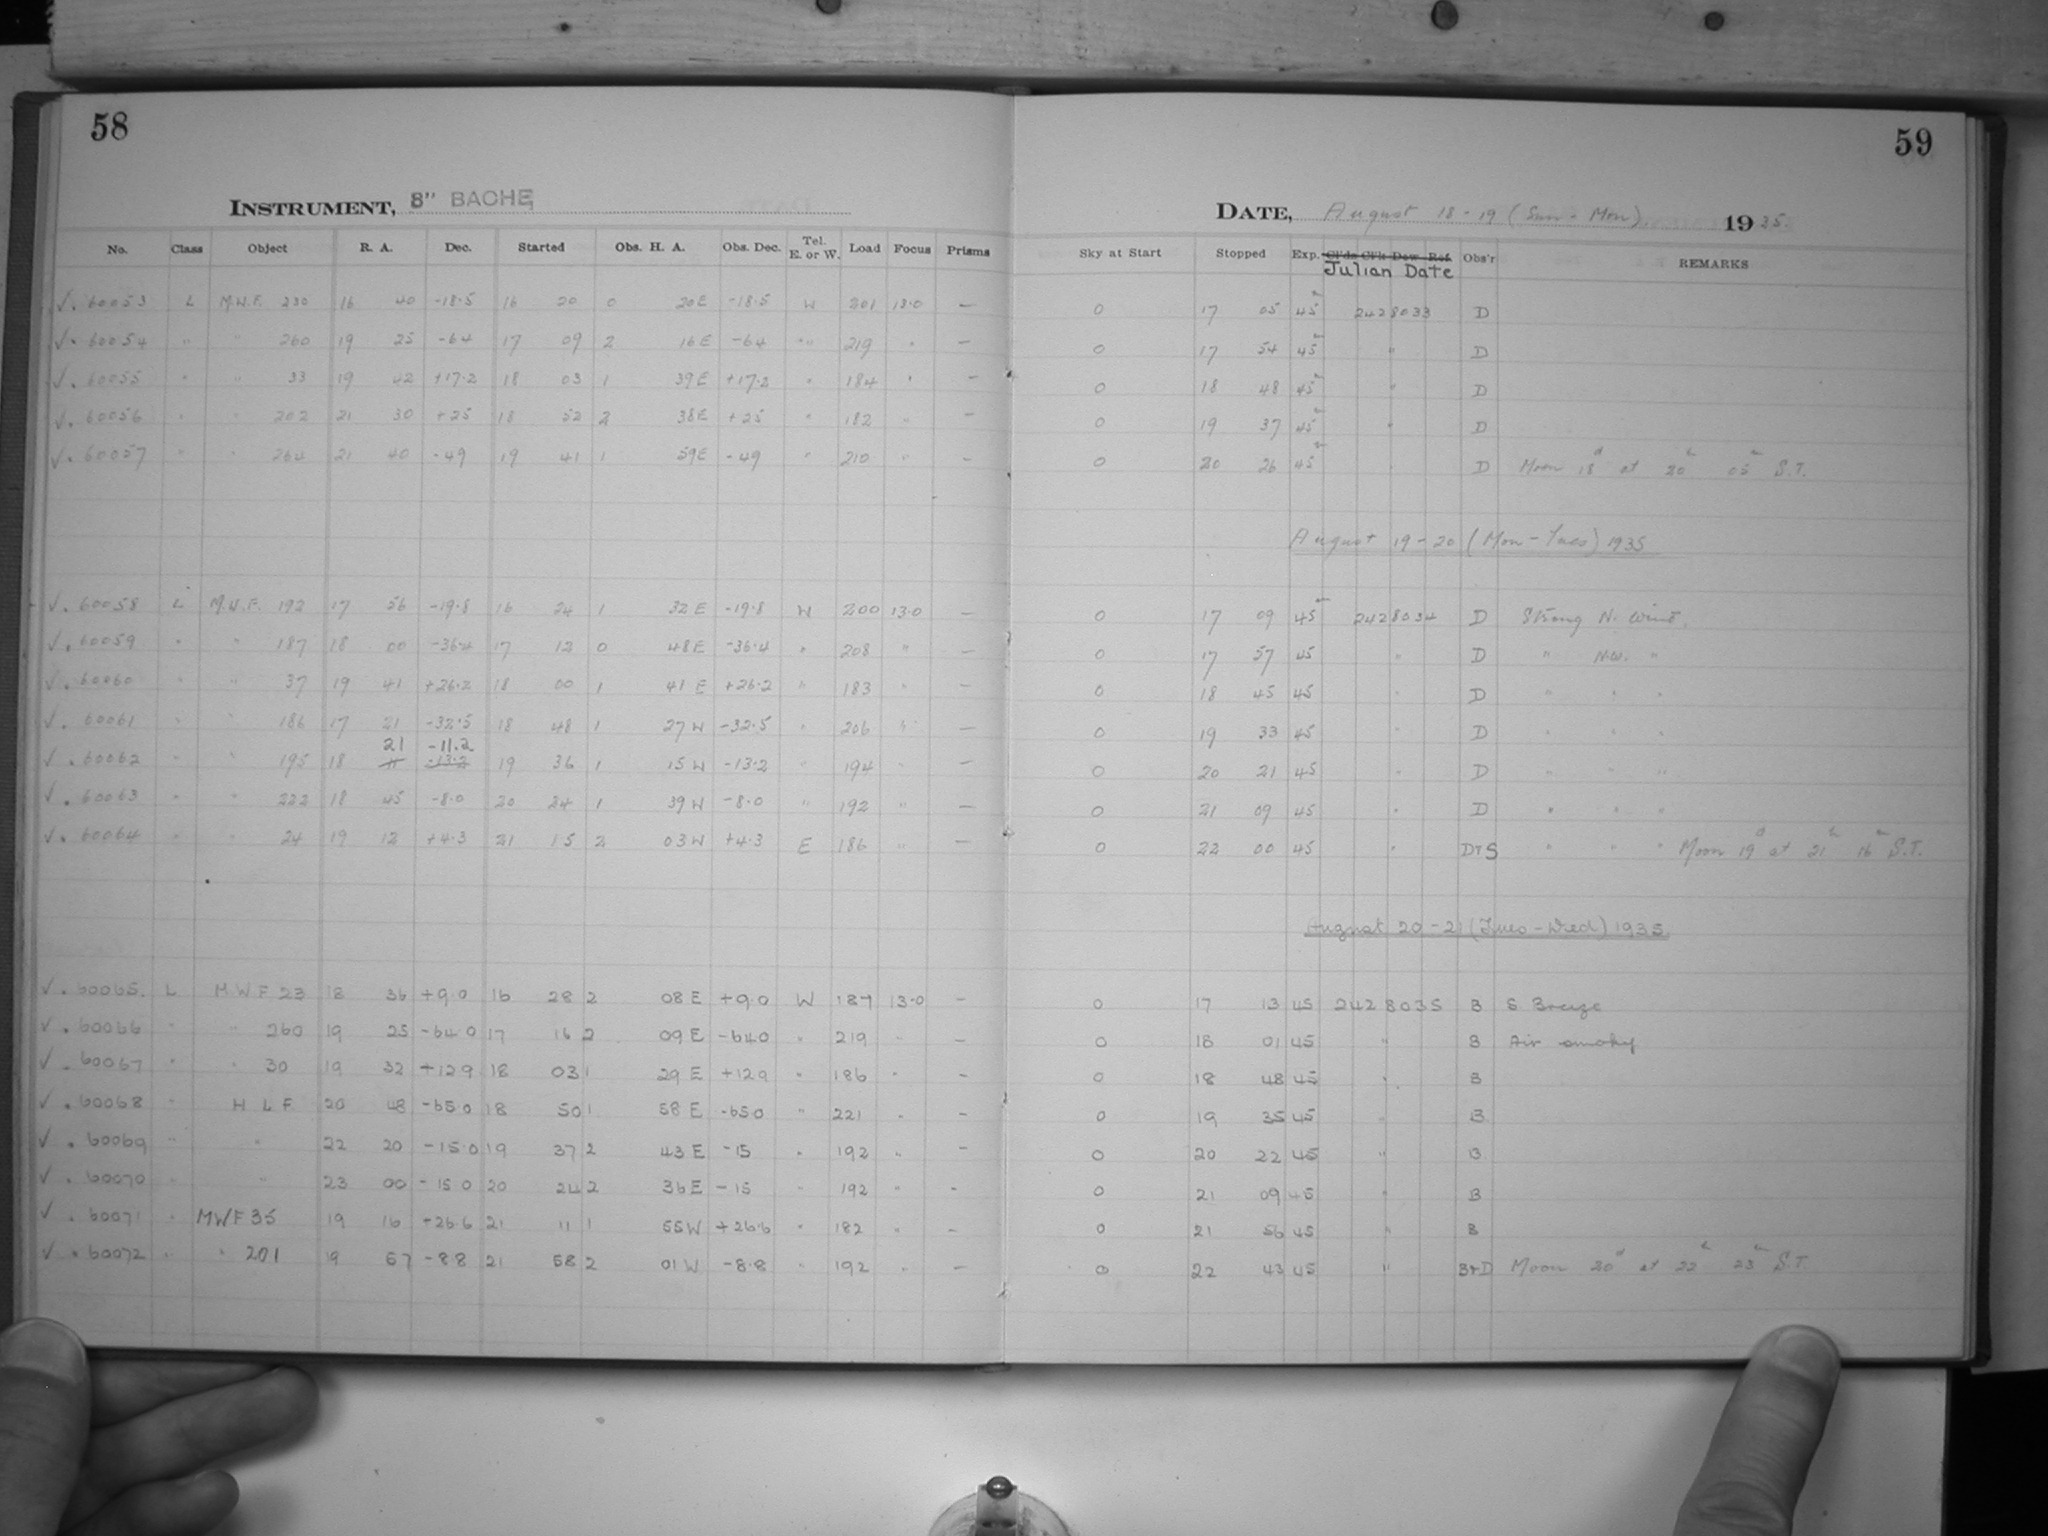 58
59
INSTRUMENT, 8" BACHE
DATE, August 18-19 (Sun-Mon). 1935.
No. Class Object R. A. Dec. Started Obs. H. A. Obs. Dec. Tel. E. or W. Load Focus Prisms Sky at Start Stopped Exp. Cl'ds Cl'k Dew Ref. Julian Date Obs'r REMARKS
√. 60053 L M.W.F. 230 16 40 -18.5 16 20 0 20E -18.5 W 201 13.0 — 0 17 05 45 2428033 D
√. 60054 " " 260 19 25 -64 17 09 2 16E -64 " 219 " — 0 17 54 45 " D
√. 60055 " " 33 19 42 +17.2 18 03 1 39E +17.2 " 184 " — 0 18 48 45 " D
√. 60056 " " 202 21 30 +25 18 52 2 38E +25 " 182 " — 0 19 37 45 " D
√. 60057 " " 264 21 40 -49 19 41 1 59E -49 " 210 " — 0 20 26 45 " D Moon 18d at 20h 05m S.T.
August 19-20 (Mon-Tues) 1935
√. 60058 L M.W.F. 192 17 56 -19.8 16 24 1 32E -19.8 W 200 13.0 — 0 17 09 45 2428034 D Strong N. Wind.
√. 60059 " " 187 18 00 -36.4 17 12 0 48E -36.4 " 208 " — 0 17 57 45 " D " N.W. "
√. 60060 " " 37 19 41 +26.2 18 00 1 41E +26.2 " 183 " — 0 18 45 45 " D " " "
√. 60061 " " 186 17 21 -32.5 18 48 1 27W -32.5 " 206 " — 0 19 33 45 " D " " "
21 -11.2
√. 60062 " " 195 18 11 -13.2 19 36 1 15W -13.2 " 194 " — 0 20 21 45 " D " " "
√. 60063 " " 222 18 45 -8.0 20 24 1 39W -8.0 " 192 " — 0 21 09 45 " D " " "
√. 60064 " " 24 19 12 +4.3 21 15 2 03W +4.3 E 186 " — 0 22 00 45 " D+S " " " Moon 19d at 21h 16m S.T.
August 20-21 (Tues-Wed) 1935
√. 60065. L M.W.F 23 18 36 +9.0 16 28 2 08E +9.0 W 187 13.0 — 0 17 13 45 2428035 B S Breeze
√. 60066 " " 260 19 25 -64 0 17 16 2 09E -640 " 219 " — 0 18 01 45 " B Air smoky
√. 60067 " " 30 19 32 +129 18 03 1 29E +129 " 186 " — 0 18 48 45 " B
√. 60068 " H L F 20 48 -65.0 18 50 1 58E -650 " 221 " — 0 19 35 45 B
√. 60069 " " 22 20 -15 0 19 37 2 43E -15 " 192 " — 0 20 22 45 " B
√. 60070 " 23 00 -15 0 20 24 2 36E -15 " 192 " — 0 21 09 45 " B
√. 60071 " MWF 35 19 16 +26.6 21 11 1 55W +26.6 " 182 " — 0 21 56 45 " B
√. 60072 " " 201 19 57 -88 21 58 2 01W -8.8 " 192 " — 0 22 43 45 " B+D Moon 20d at 22h 23m S.T.